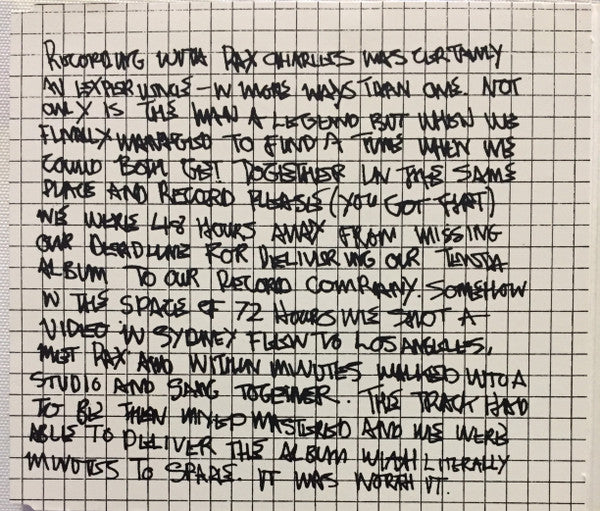 RECORDING WITH RAY CHARLES WAS CERTAINLY
AN EXPERIENCE - IN MORE WAYS THAN ONE. NOT
ONLY IS THE MAN A LEGEND BUT WHEN WE
FINALLY MANAGED TO FIND A TIME WHEN WE
COULD BOTH GET TOGETHER IN THE SAME
PLACE AND RECORD PLEASE (YOU GOT THAT)
WE WERE 48 HOURS AWAY FROM MISSING
OUR DEADLINE FOR DELIVERING OUR TENTH
ALBUM TO OUR RECORD COMPANY. SOMEHOW
IN THE SPACE OF 72 HOURS WE SHOT A
VIDEO IN SYDNEY FLEW TO LOS ANGELES,
MET RAY AND WITHIN MINUTES WALKED INTO A
STUDIO AND SANG TOGETHER. THE TRACK HAD
TO BE THEN MIXED MASTERED AND WE WERE
ABLE TO DELIVER THE ALBUM WITH LITERALLY
MINUTES TO SPARE. IT WAS WORTH IT.